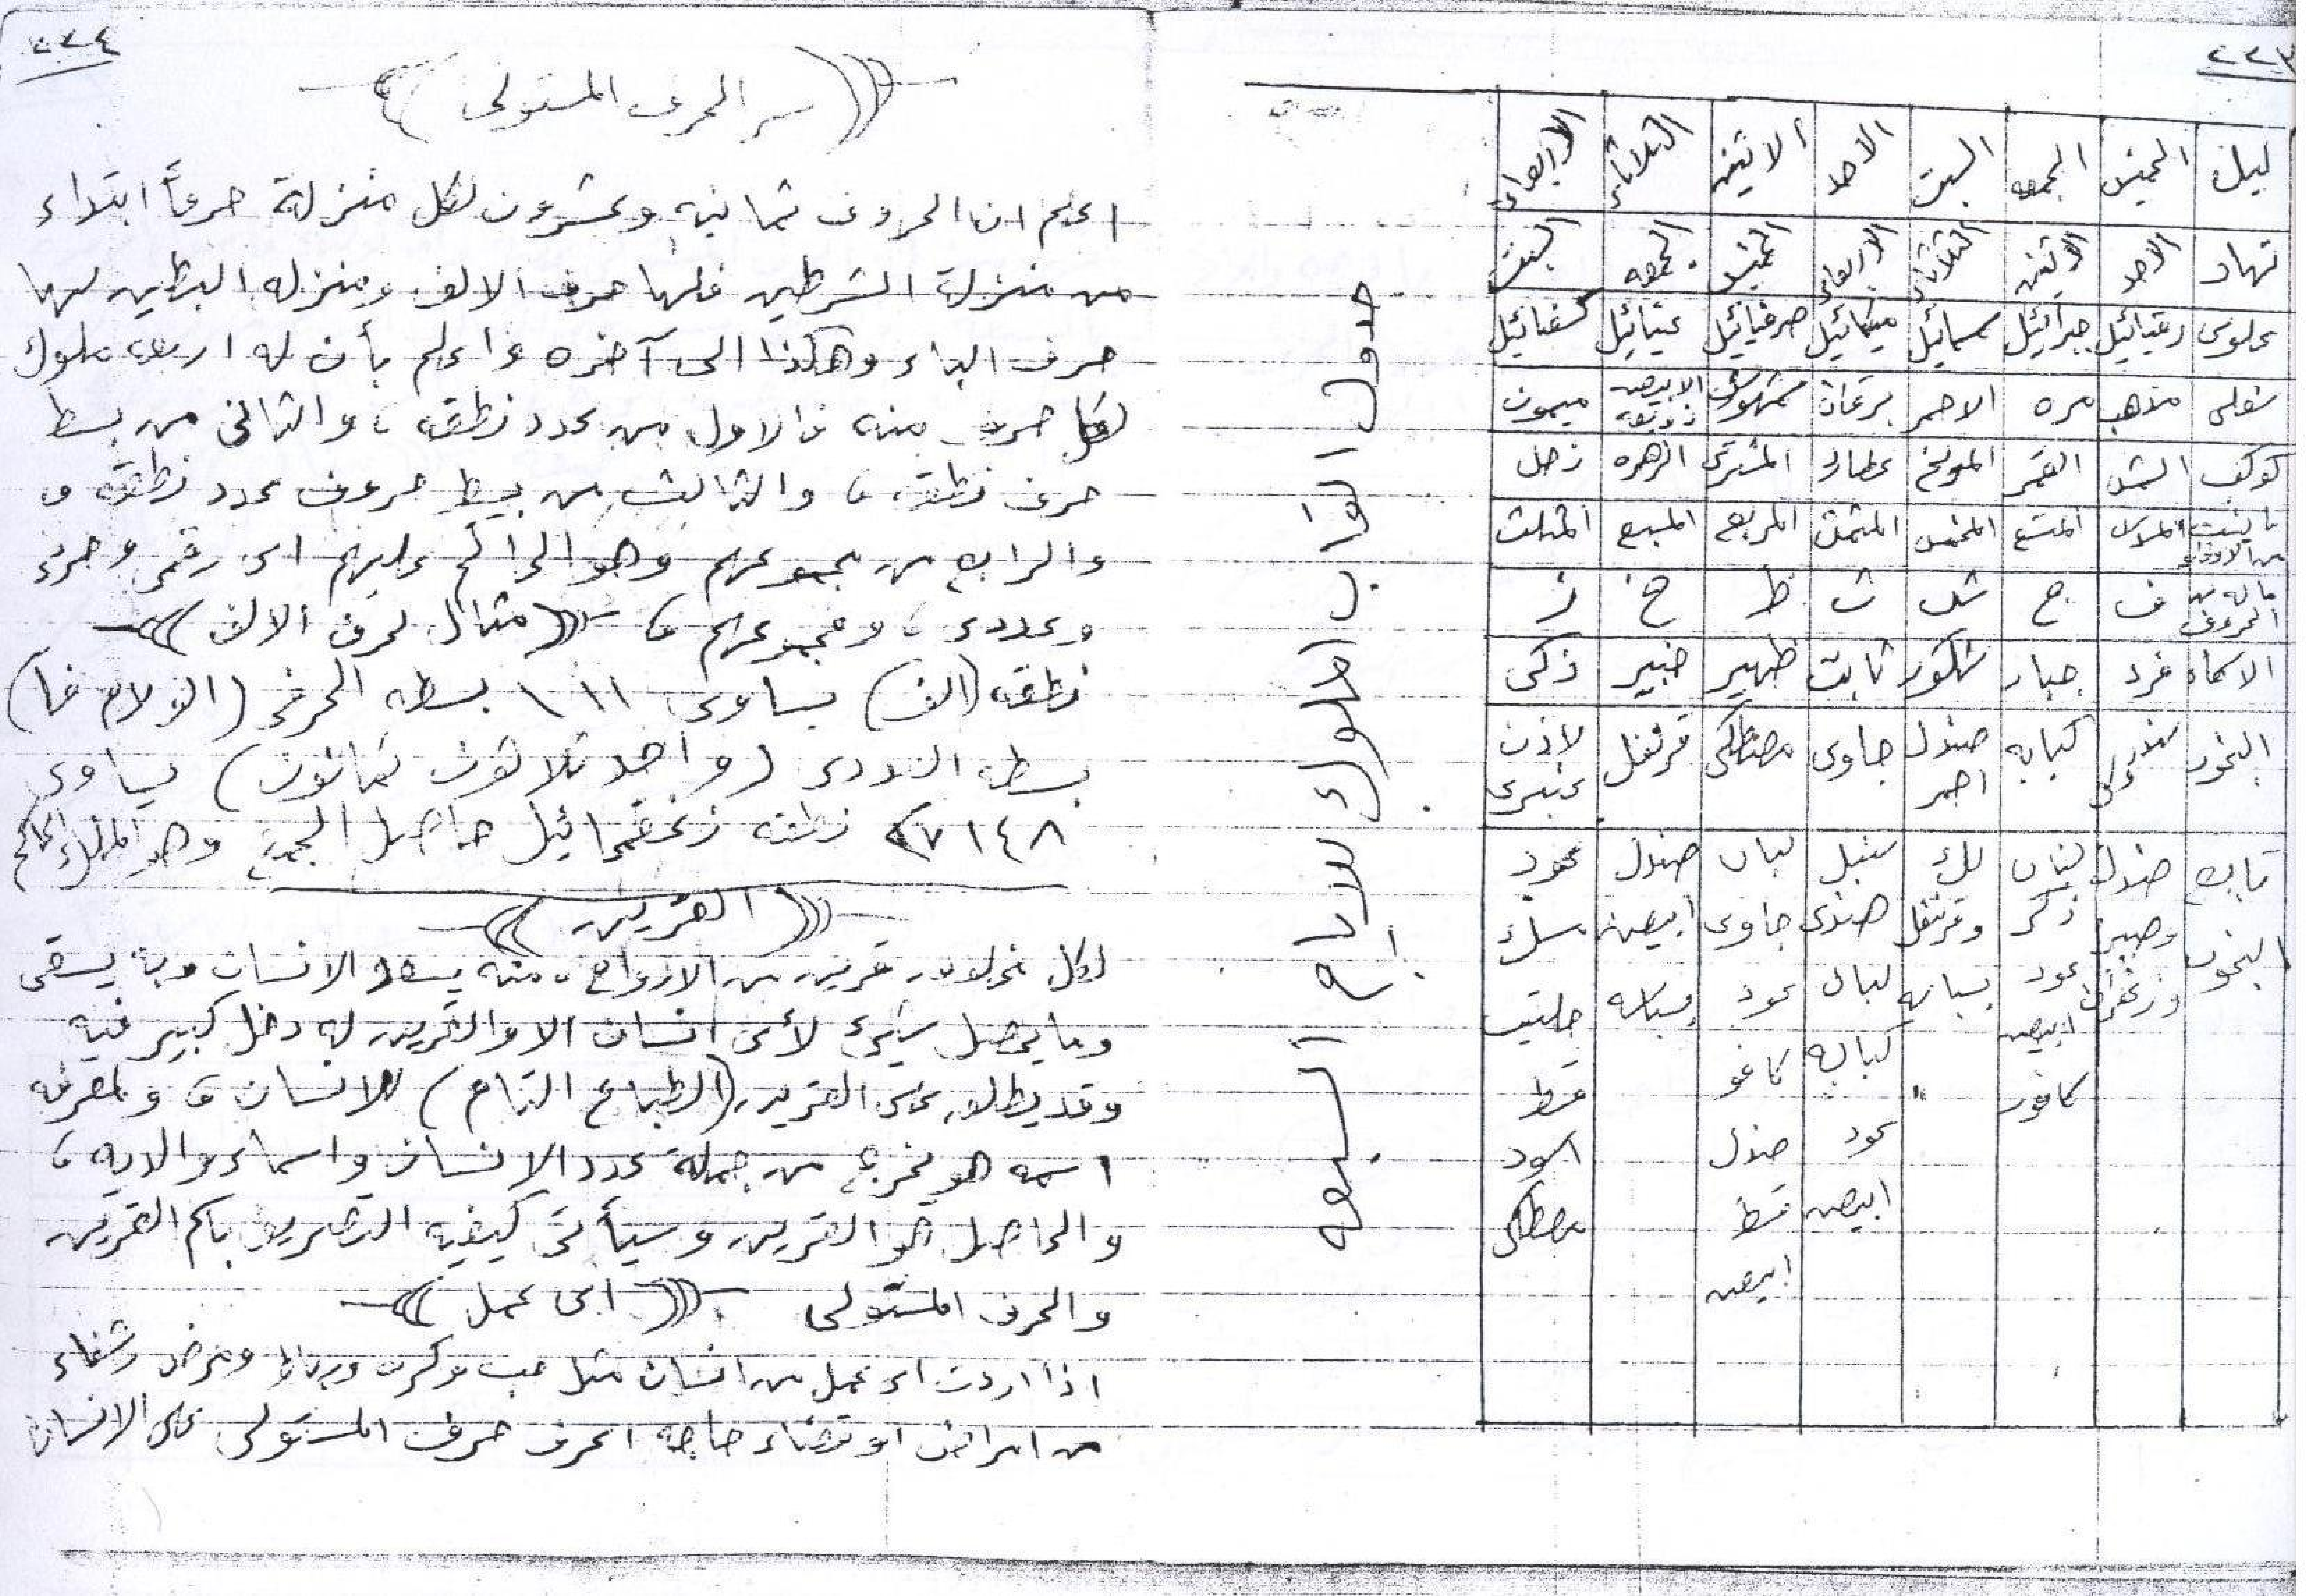 ٢٢٣
ليلة الخميس الجمعه السبت الاحد الاثنين الثلاثاء الاربعاء
نهار الاحد الاثنين الثلاثاء الاربعاء الخميس الجمعه السبت
علوى رقيائيل جبرائيل سمسمائيل ميكائيل صرفيائيل عنيائيل كسفيائيل
سفلى مذهب مره الاحمر برقان شمهورش الابيض زوبعه ميمون
كوكب الشمس القمر المريخ عطارد المشترى الزهره زحل
من الاوفاق المسدس المتسع المخمس المثمن المربع المسبع المثلث
ماله من الحروف ف ج ش ث ظ خ ز
الاسماء فرد جبار شكور ثابت ظهير خبير زكى
البخور كبابه صندل احمر جاوى مصطكى قرنفل لاذن عنبرى
تابع البخور صندل وصبر وزعفران لبان ذكر عود ابيض كافور لك وقرنفل بسباسه سنبل صندل لبان كبابه عود ابيض لبان جاوى عود كافور صندل قسط ابيض صندل ابيض بسباسه عود مسك حلتيت قسط اسود مصطكى
جدول ابواب الملوك للايام السبعه
٢٢٤
سر الحرف المستولى
اعلم ان الحروف ثمانيه وعشرون لكل منزلة حرفاً ابتداء
من منزلة الشرطين فلها حرف الالف ومنزله البطين لها
حرف الباء وهكذا الى آخره واعلم بأن له اربعه ملوك
لكل حرف منه فالاول من عدد نطقه ، والثانى من بسط
حرف نطقه ، والثالث من بسط حروف عدد نطقه و
والرابع من مجموعهم وهو الحاكم عليهم اى رقمى وحرفى
وعددى ، ومجموعهم ، (( مثال لحرف الالف ))
نطقه (الف) يساوى ١١١ بسطه الحرفى (الف لام فا)
بسطه العددى (واحد ثلاثون ثمانون) يساوى
١٤٨ نطقه حاصل الجمع وهو الملك الحاكم
(( القرين ))
لكل مخلوق قرين من الارواح ، منه يسعد الانسان وبه يشقى
وما يحصل شىء لأى انسان الا والقرين له دخل كبير فيه
وقد يطلق على القرين (الطباع التام) للانسان ، ولمعرفه
اسمه هو يخرج من جملة عدد الانسان واسماء والديه ،
والحاصل هو القرين وسيأتى كيفيه التصريف باسم القرين
والحرف المستولى (( اى عمل ))
اذا اردت اى عمل من انسان مثل حب وكره ومرض وشفاء
من امراض او قضاء حاجة اعرف حرف المستولى على الانسان